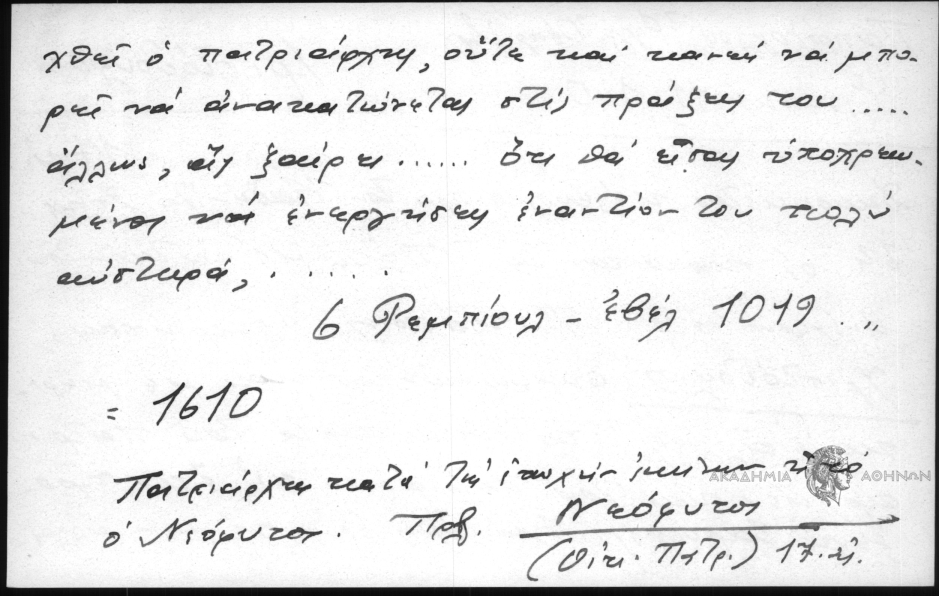 χθεῖ ὁ πατριάρχης, οὔτε καί κανείς νά μπο-
ρεῖ νά ἀνακατώνεται στίς πράξεις του .....
ἄλλως, ἄς ξαίρει ...... ὅτι θά εἶσαι ὑποχρεω-
μένος νά ἐνεργήσεις ἐναντίον του πολύ
αὐστηρά, . . . . . .
6 Ρεμπίουλ - ἐβέλ 1019 . „
= 1610
Πατριάρχης κατά τήν ἐποχήν ἐκείνην
ΑΚΑΔΗΜΙΑ ΑΘΗΝΩΝ
ὁ Νεόφυτος. Πρβ. Νεόφυτος
(Οἰκ. Πατρ.) 17. αἰ.